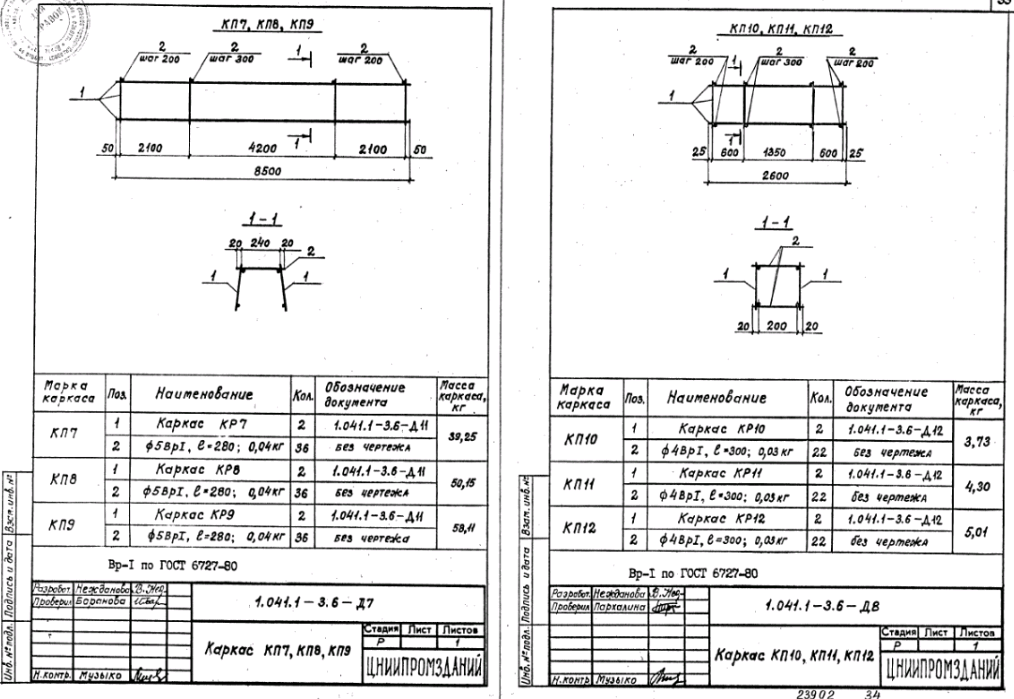 КП7, КП8, КП9
2
шаг 200
2
шаг 300
1
2
шаг 200
1
1
50 2100 4200 2100 50
8500
1-1
20 240 20
2
1 1
Марка каркаса Поз. Наименование Кол. Обозначение документа Масса каркаса, кг
КП7 1 Каркас КР7 2 1.041.1-3.6-Д11 39,25
2 ф5ВрI, ℓ=280; 0,04кг 36 без чертежа
КП8 1 Каркас КР8 2 1.041.1-3.6-Д11 50,15
2 ф5ВрI, ℓ=280; 0,04кг 36 без чертежа
КП9 1 Каркас КР9 2 1.041.1-3.6-Д11 58,11
2 ф5ВрI, ℓ=280; 0,04кг 36 без чертежа
Вр-I по ГОСТ 6727-80
Разработ. Нежданова
Проверил Баранова
1.041.1-3.6-Д7
Каркас КП7, КП8, КП9
Стадия Лист Листов
Р 1
ЦНИИПРОМЗДАНИЙ
Н.контр. Музыко
Инв.№подл. Подпись и дата Взам.инв.№
КП10, КП11, КП12
2
шаг 200
1
2
шаг 300
2
шаг 200
1
1
25 600 1350 600 25
2600
1-1
2
1 1
20 200 20
Марка каркаса Поз. Наименование Кол. Обозначение документа Масса каркаса, кг
КП10 1 Каркас КР10 2 1.041.1-3.6-Д12 3,73
2 ф4ВрI, ℓ=300; 0,03кг 22 без чертежа
КП11 1 Каркас КР11 2 1.041.1-3.6-Д12 4,30
2 ф4ВрI, ℓ=300; 0,03кг 22 без чертежа
КП12 1 Каркас КР12 2 1.041.1-3.6-Д12 5,01
2 ф4ВрI, ℓ=300; 0,03кг 22 без чертежа
Вр-I по ГОСТ 6727-80
Разработ. Нежданова
Проверил Пархалина
1.041.1-3.6-Д8
Каркас КП10, КП11, КП12
Стадия Лист Листов
Р 1
ЦНИИПРОМЗДАНИЙ
Н.контр. Музыко
Инв.№подл. Подпись и дата Взам.инв.№
23902 34